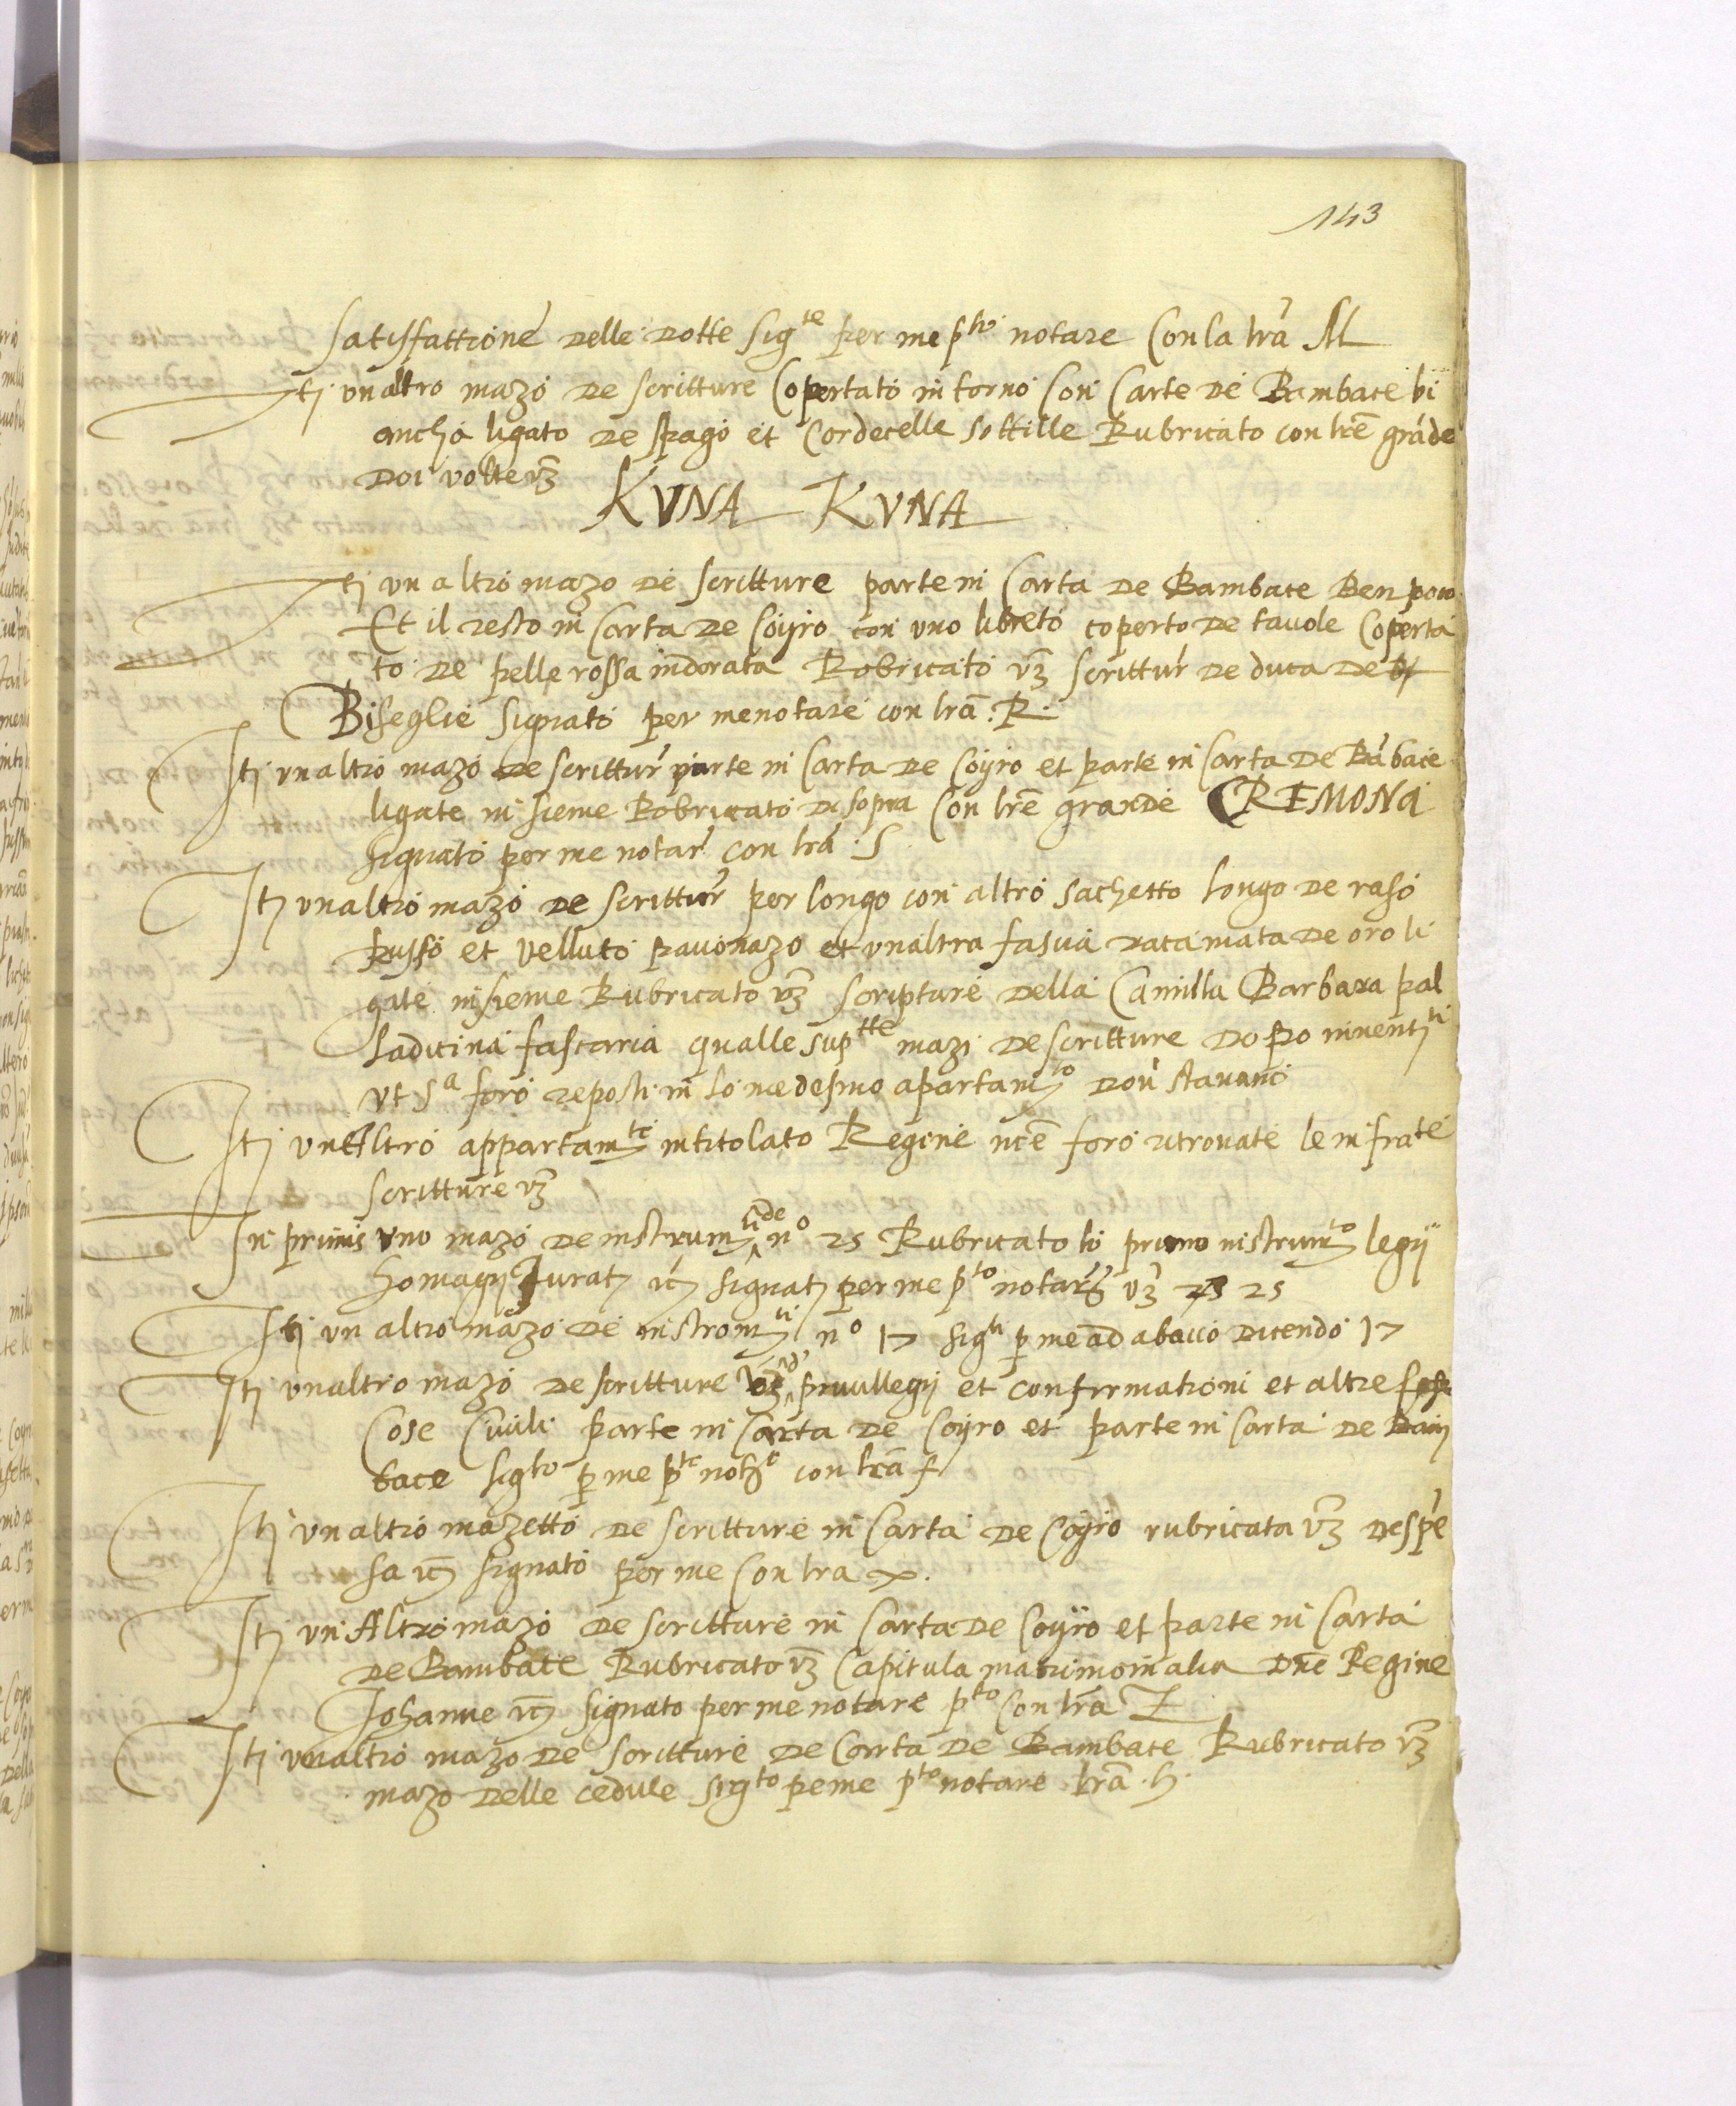 143
satisfattione delle dotte sig.te per me p.to notare con la lrã M
Itj un altro mazo de scritture copertato intorno con carte de Bambace bi
ancha ligato de spago et cordecelle sottille Rubricato con lrẽ gráde
doi volte vz
KVNA KVNA
Itj un altro mazo de scritture parte in carta de Bambace Ben poco
Et il resto in carta de coyro con uno libreto coperto de tavole coperta
to de pelle rossa indorata Robricato vz scrittur de duca de
Biseglie signato per me notare con lrã .R.
Itj un altro mazo de scrittur parte in carta de coyro et parte in carta de Bábace
ligate insieme Robricato di sopra con lrẽ grande CREMONA
signato per me notar con lrã .S
Itj un altro mazo de scrittur per longo con altro sachetto longo de raso
Russo et velluto pavonazo et un altra fasua racamata de oro li
gate insieme Rubricato vz scripture della Camilla Barbara pal
ladicina fascaria qualle sup.tte mazi de scritture dopo inventj.ti
ut s.a foro reposti in lo medesmo apartam.to dov stavano
Itj un Altro appartam.te intitolato Regine ncẽ foro ritrovate le infrate
scritture vz
In primis uno mazo de instrum.ti de n.o 25 Rubricato lo primo instrum.to legij
homagij Jurat, etc signat, per me p.to notar vz 25
Itj un altro mazo de instrom.ti n.o 17 sig.ti p me ad abacco dicendo 17
Itj un altro mazo de scritture vz privillegij et confirmationi et altre
cose Civili parte in carta de coyro et parte in carta de Bam
bace sig.to p me p.te not.e con lrã f
Itj un altro mazetto de scritture in carta de coyro rubricata vz despé
sa etc signato per me con lra x.
Itj un Altro mazo de scritture in carta de coyro et parte in carta
de Bambace Rubricato vz Capitula matrimonialia Dnẽ Regine
Johanne etc signato per me notare p.to con lrã Z
Itj un altro mazo de scritture de carta de Bambace Rubricato vz
mazo delle cedule sig.to p me p.to notare lrã .h.